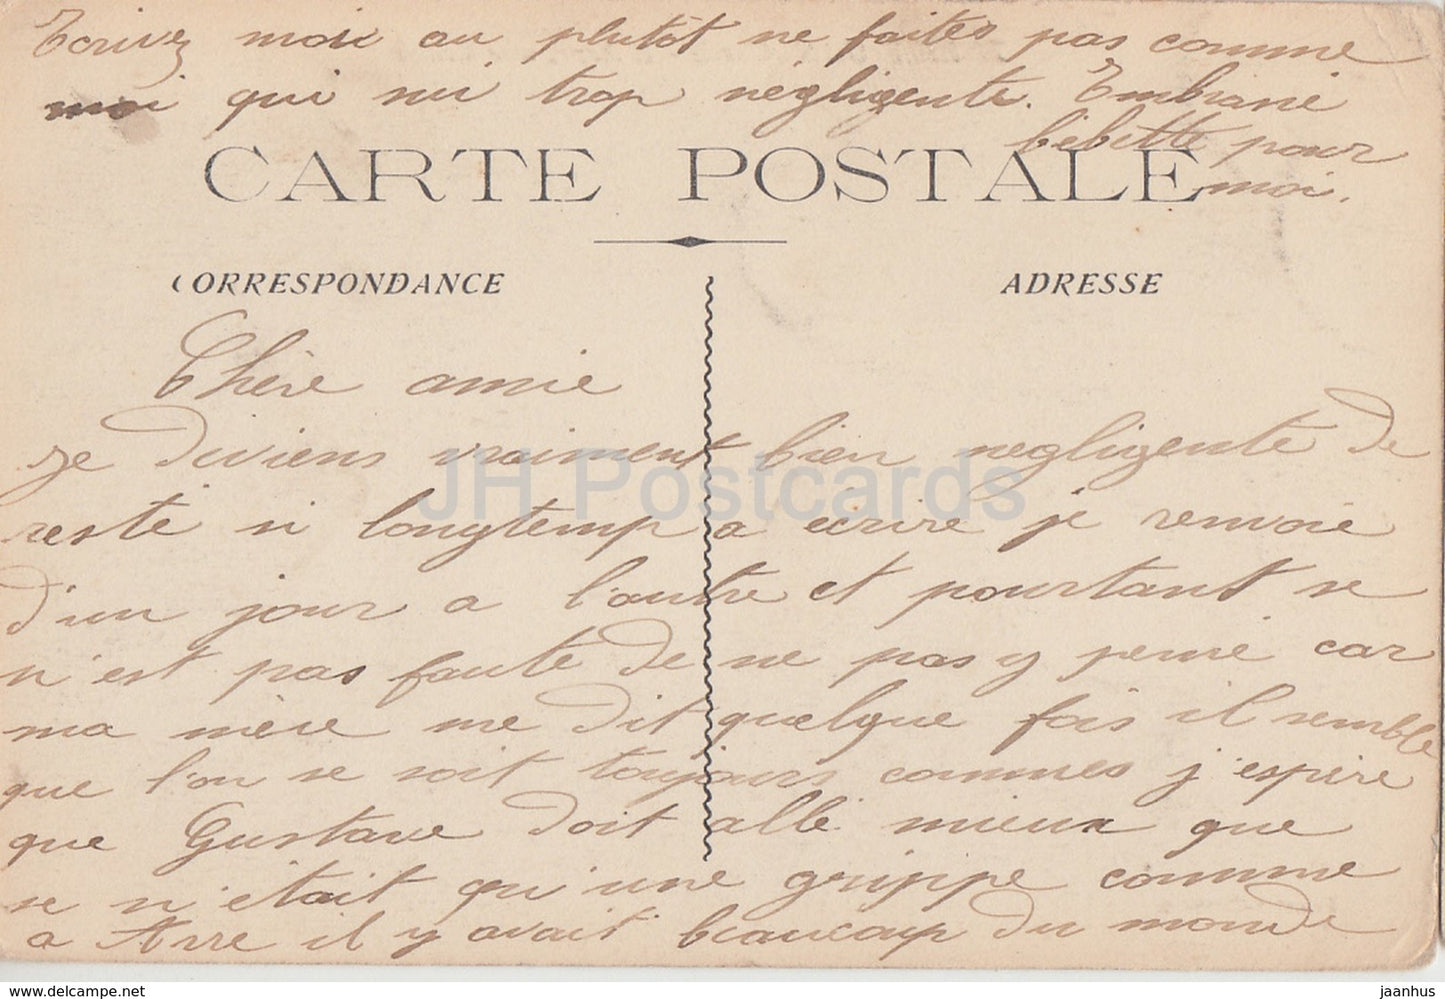 Ecrivez moi au plutôt ne faites pas comme
moi qui sui trop négligente. Embrassé
bébette pour
moi.
CARTE POSTALE
CORRESPONDANCE
ADRESSE
Chère amie
Je deviens vraiment bien negligente de
reste si longtemp a écrire je renvoie
d'un jour a l'autre et pourtant se
n'est pas faute de ne pas y pensé car
ma mère me dit quelque fois il semble
que l'on se soit toujours commes j'espère
que Gustave doit allé mieux que
se n'était qu'une grippe comme
a Arre il y avait beaucoup du monde
JH Postcards
www.delcampe.net
jaanhus